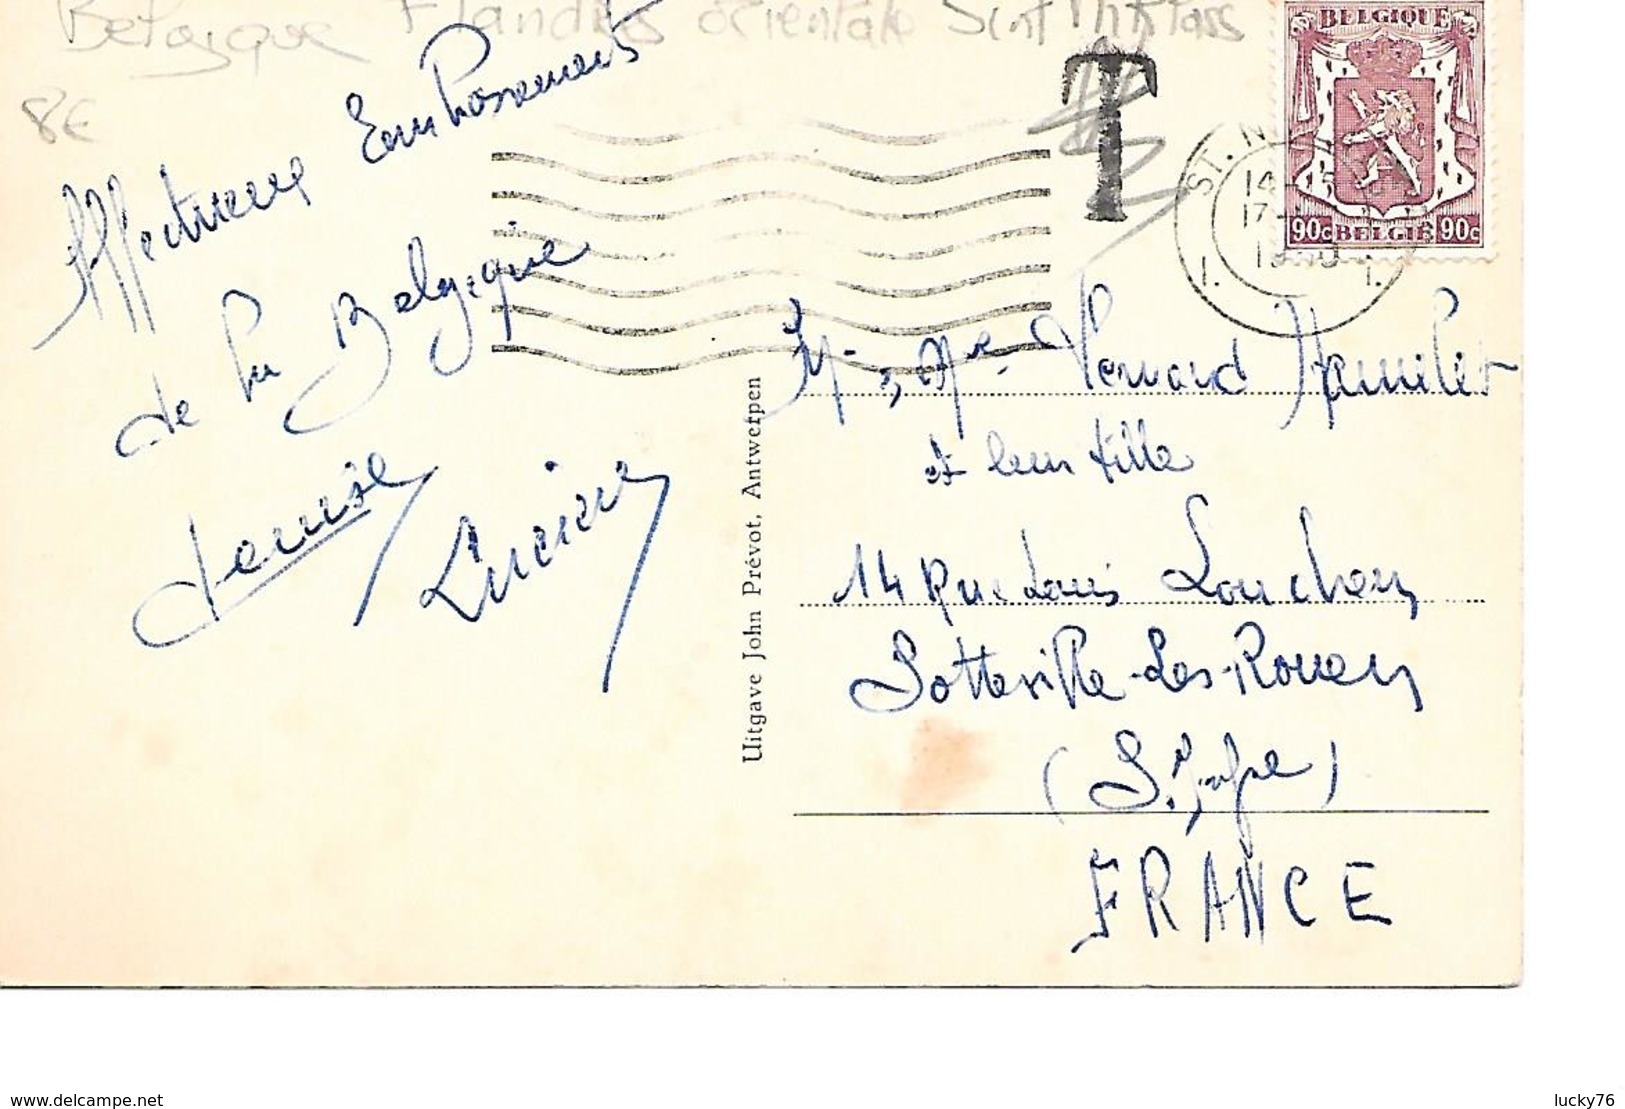 Belgique Flandres Orientale Sint Niklass
8€
Affectueux Embrassements
de la Belgique
Denise
Lucien
Uitgave John Prévot, Antwerpen
T
BELGIQUE
90c BELGIE 90c
ST. N
14-
17-
1. 1.
Mr, Me
et leur fille
14 Rue Louis Loucheur
Sotteville-Les-Rouen
(S. Infre)
FRANCE
www.delcampe.net
lucky76